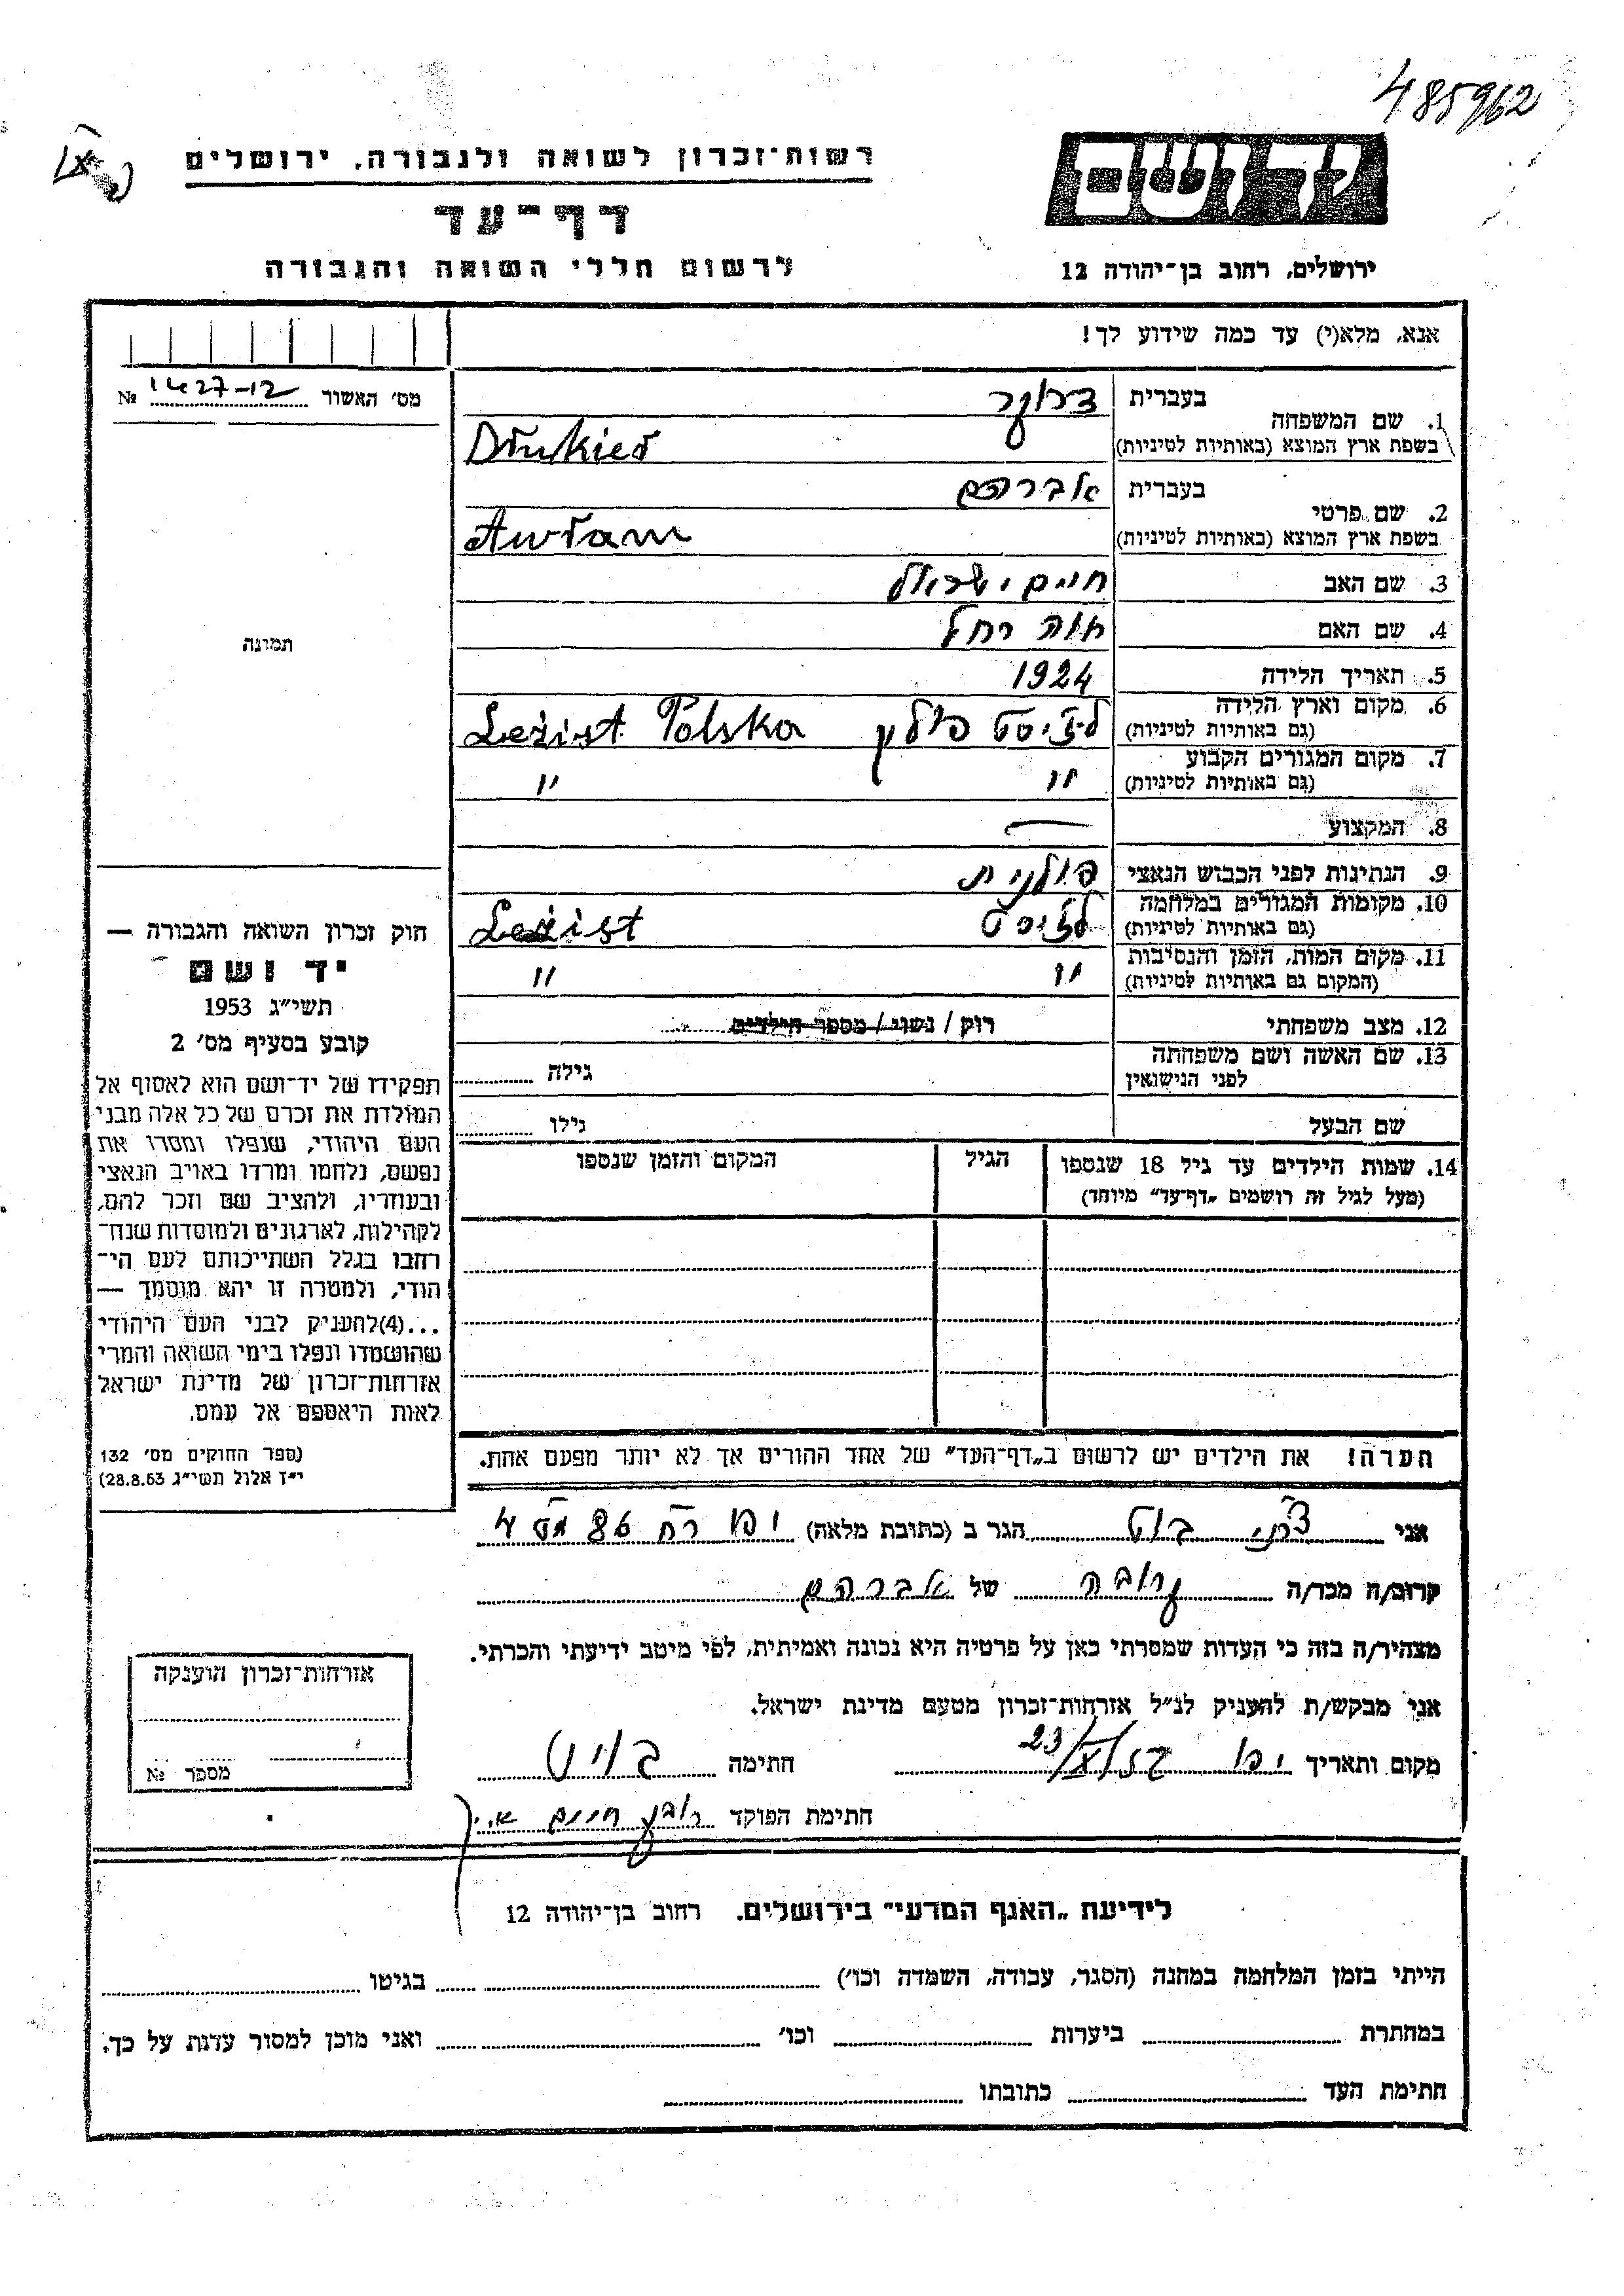 485962
רשות־זכרון לשואה ולגבורה, ירושלים
דף־עד
לרשום חללי השואה והגבורה
יד ושם
ירושלים, רחוב בן־יהודה 12
אנא, מלא(י) עד כמה שידוע לך!
מס׳ האשור 1427-12 №
תמונה
1. שם המשפחה
בעברית
בשפת ארץ המוצא (באותיות לטיניות) Drukier
2. שם פרטי
בעברית אברהם
בשפת ארץ המוצא (באותיות לטיניות) Awram
3. שם האב חיים ישראל
4. שם האם חוה רחל
5. תאריך הלידה 1924
6. מקום וארץ הלידה
(גם באותיות לטיניות) לזיסט פולין Leżist Polska
7. מקום המגורים הקבוע
(גם באותיות לטיניות) " "
8. המקצוע —
9. הנתינות לפני הכבוש הנאצי פולנית
10. מקומות המגורים במלחמה
(גם באותיות לטיניות) לזיסט Leżist
11. מקום המות, הזמן והנסיבות
(המקום גם באותיות לטיניות) " "
12. מצב משפחתי רוק / נשוי / מספר הילדים
13. שם האשה ושם משפחתה
לפני הנישואין גילה
שם הבעל גילו
14. שמות הילדים עד גיל 18 שנספו הגיל המקום והזמן שנספו
(מעל לגיל זה רושמים „דף־עד" מיוחד)
חוק זכרון השואה והגבורה —
יד ושם
תשי״ג 1953
קובע בסעיף מס׳ 2
תפקידו של יד־ושם הוא לאסוף אל
המולדת את זכרם של כל אלה מבני
העם היהודי, שנפלו ומסרו את
נפשם, נלחמו ומרדו באויב הנאצי
ובעוזריו, ולהציב שם וזכר להם,
לקהילות, לארגונים ולמוסדות שנח־
רחבו בגלל השתייכותם לעם הי־
הודי, ולמטרה זו יהא מוסמך —
...(4)להעניק לבני העם היהודי
שהושמדו ונפלו בימי השואה והמרי
אזרחות־זכרון של מדינת ישראל
לאות היאספם אל עמם.
(ספר החוקים מס׳ 132
י״ז אלול תשי״ג 28.8.53)
הערה! את הילדים יש לרשום ב„דף־העד" של אחד ההורים אך לא יותר מפעם אחת.
אני הגר ב (כתובת מלאה) יפו רח 86
קרוב/ה מכר/ה קרובה של אברהם
מצהיר/ה בזה כי העדות שמסרתי כאן על פרטיה היא נכונה ואמיתית, לפי מיטב ידיעתי והכרתי.
אני מבקש/ת להעניק לנ״ל אזרחות־זכרון מטעם מדינת ישראל.
מקום ותאריך יפו 23/ חתימה
חתימת הפוקד חיים
אזרחות־זכרון הוענקה
מספר №
לידיעת „האגף המדעי" בירושלים. רחוב בן־יהודה 12
הייתי בזמן המלחמה במחנה (הסגר, עבודה, השמדה וכו׳) בגיטו
במחתרת ביערות וכו׳ ואני מוכן למסור עדות על כך.
חתימת העד כתובתו